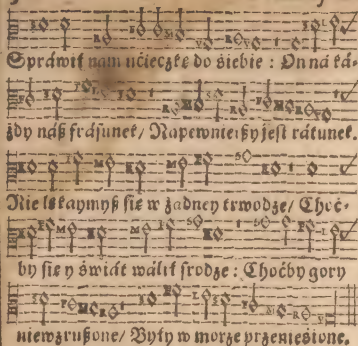 Spráwił nam ućieczkę do śiebie : On ná ká-
żdy náß frásunek/ Napewnieißy jest rátunek.
Nie lękaymyß śię w żadney trwodze/ Choć-
by śię y świát wálił srodze : Choćby gory
niewzrußone/ Były w morze przenieśione.